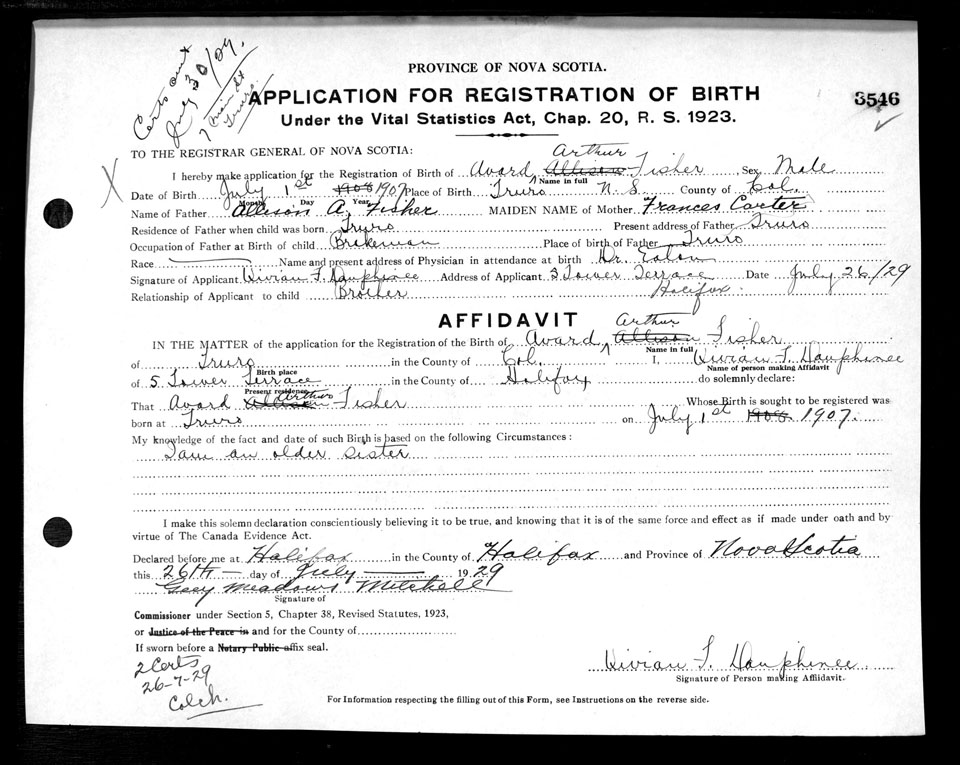 Certs out
July 30/29.
7 Main St
Truro
PROVINCE OF NOVA SCOTIA.
APPLICATION FOR REGISTRATION OF BIRTH
3546
Under the Vital Statistics Act, Chap. 20, R. S. 1923.
TO THE REGISTRAR GENERAL OF NOVA SCOTIA:
Arthur
I hereby make application for the Registration of Birth of Avard Allison Fisher Sex Male
Name in full
Date of Birth July 1st 1908 1907 Place of Birth Truro N. S County of Col.
Month Day Year
Name of Father Allison A. Fisher MAIDEN NAME of Mother Frances Carter
Residence of Father when child was born Truro Present address of Father Truro
Occupation of Father at Birth of child Brakeman Place of birth of Father Truro
Race Name and present address of Physician in attendance at birth Dr. Eaton
Signature of Applicant Vivian F. Dauphinee Address of Applicant 5 Tower Terrace Date July 26/29
Relationship of Applicant to child Brother Halifax.
AFFIDAVIT
Arthur
IN THE MATTER of the application for the Registration of the Birth of Avard Allison Fisher
Name in full
of Truro in the County of Col. I, Vivian F. Dauphinee
Birth place Name of person making Affidavit
of 5 Tower Terrace in the County of Halifax do solemnly declare:
Present residence
Arthur
That Avard Allison Fisher Whose Birth is sought to be registered was
born at Truro on July 1st 1908. 1907.
My knowledge of the fact and date of such Birth is based on the following Circumstances:
I am an older sister
I make this solemn declaration conscientiously believing it to be true, and knowing that it is of the same force and effect as if made under oath and by
virtue of The Canada Evidence Act.
Declared before me at Halifax in the County of Halifax and Province of Nova Scotia
this 26th day of July 1929
Meadows Mitchell
Signature of
Commissioner under Section 5, Chapter 38, Revised Statutes, 1923,
or Justice of the Peace in and for the County of
If sworn before a Notary Public affix seal.
2 Certs
26-7-29
Colch.
Vivian F. Dauphinee
Signature of Person making Affidavit.
For Information respecting the filling out of this Form, see Instructions on the reverse side.